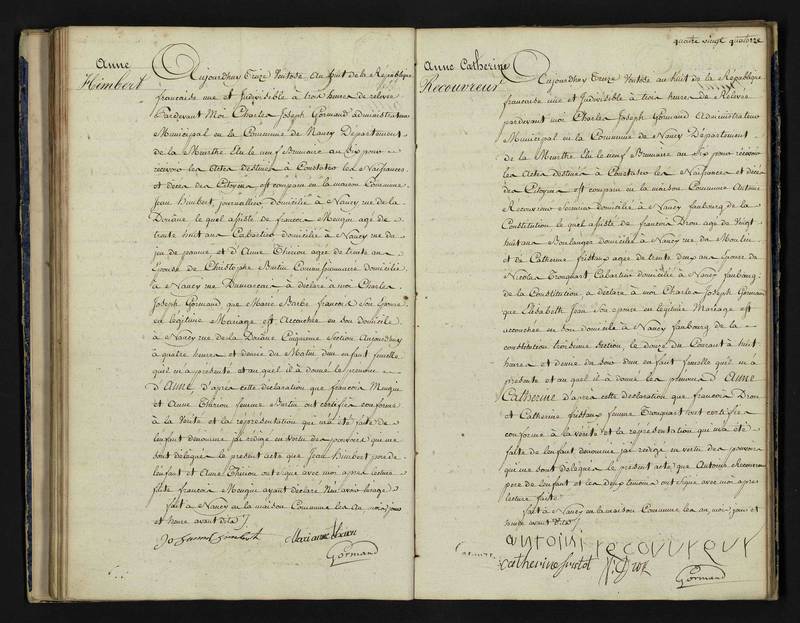 Anne
Himbert
Aujourdhuy Treize Ventose au huit de la République
francaise une et Indivisible à trois heures de relevée
Pardevant Moi Charles Joseph Gormand administrateur
Municipal en la Commune de Nancy Département
de la Meurthe Elu le neuf Brumaire an Six pour
recevoir les Actes destinés à Constater les Naissances
et deces des Citoyens est comparu en la maison Commune
Jean Himbert, journallier domicilié à Nancy rue de la
Douäne lequel assisté de francois Mengin agé de
trente huit ans Cabartier domicilié à Nancy rue du
jeu de paume et d'Anne Thirion agée de trente ans
Epouse de Christophe Burtin Commissionnaire domicilié
à Nancy rue à déclaré à moi Charles
Joseph Gormand que Marie Barbe francois Son Epouse
en légitime Mariage est Accouchée en Son domicile
à Nancy rue de la Douäne Cinquieme Section Aujourdhuy
à quatre heures et demie du Matin d'un enfant femelle
qu'il m'a présenté et auquel il à donné le prenom
d'ANNE, d'après cette déclaration que francois Mengin
et Anne Thirion femme Burtin ont certifiée conforme
à la Verité et la représentation qui m'a été faite de
l'enfant denommé jai rédigé en vertu des pouvoirs qui me
sont délégués le présent acte que Jean Himbert pere de
l'enfant et Anne Thirion ont signé avec moi apres lecture
faite francois Mengin ayant déclaré N'en avoir l'usage
fait à Nancy en la maison Commune les an, mois, jour
et heure avant dits
Marianne
Gormand
quatre vingt quatorze
Anne Catherine
Recouvreur
Aujourdhuy Treize Ventose an huit de la République
francaise une et Indivisible à trois heures de Relevée
pardevant moi Charles Joseph Gormand Administrateur
Municipal en la Commune de Nancy Département
de la Meurthe Elu le neuf Brumaire an Six pour recevoir
les Actes destinés à Constater les Naissances et décès
des Citoyens est comparu en la maison Commune Antoine
Recouvreur domicilié à Nancy faubourg de la
Constitution lequel assisté de francois Droz agé de Vingt
huit ans Boulanger domicilié à Nancy rue du Moulin
et de Catherine agée de trente deux ans Epouse de
Nicolas Cabartier domicilié à Nancy faubourg
de la Constitution, a déclaré à moi Charles Joseph Gormand
que Elisabeth Jean Son epouse en légitime Mariage est
accouchée en Son domicile à Nancy faubourg de la
constitution troisieme Section, le douze du Courant à huit
heures et demie du soir d'un enfant femelle quil m'a
présenté et auquel il à donné les prenoms d'Anne
Catherine d'après cette déclaration que francois Droz
et Catherine femme ont certifiée
conforme à la vérité et la représentation qui m'a été
faite de lenfant denommé jai redigé en vertu des pouvoirs
qui me sont délégués le présent acte, que Antoine Recouvreur
pere de lenfant et les Deux temoins ont signé avec moi apres
lecture faite
fait à Nancy en la maison Commune les an, mois, jour et
heure avant dits
antoine recouvreur
Catherine fristot
Droz
Gormand